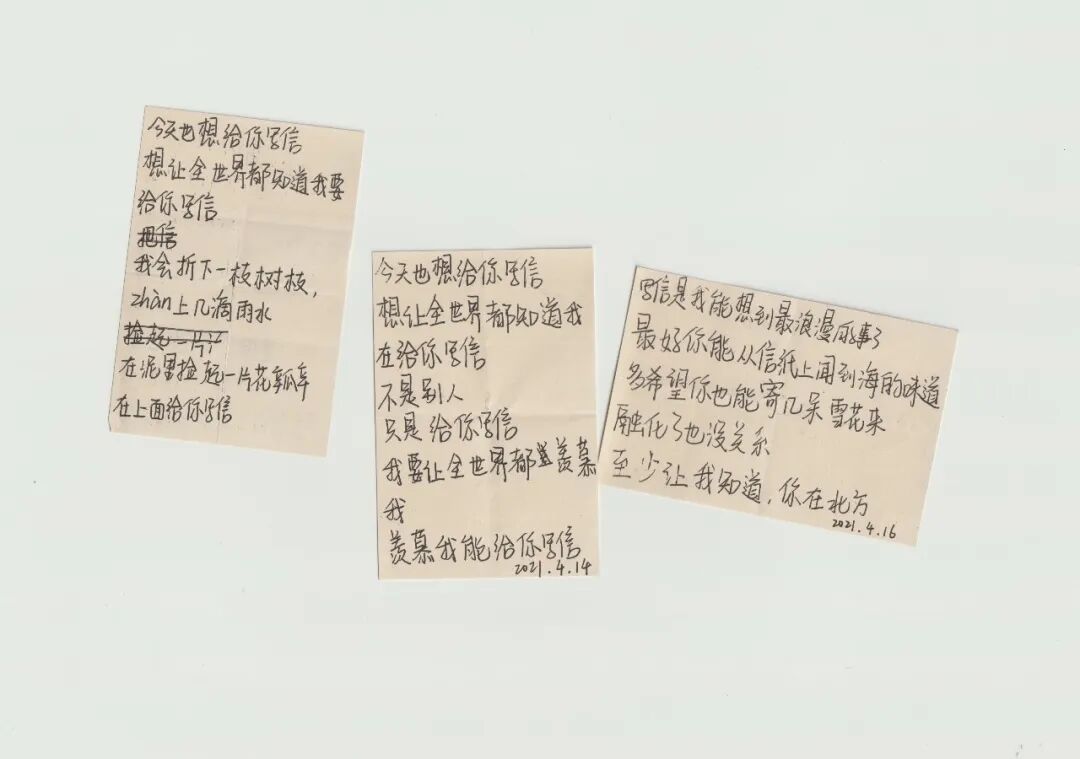 今天也想给你写信
想让全世界都知道我要
给你写信
把信
我会折下一枝树枝，
zhàn上几滴雨水
捡起一片
在泥里捡起一片花瓣
在上面给你写信
今天也想给你写信
想让全世界都知道我
在给你写信
不是别人
只是给你写信
我要让全世界都羡慕
我
羡慕我能给你写信
2021.4.14
写信是我能想到最浪漫的事了
最好你能从信纸上闻到海的味道
多希望你也能寄几朵雪花来
融化了也没关系
至少让我知道，你在北方
2021.4.16